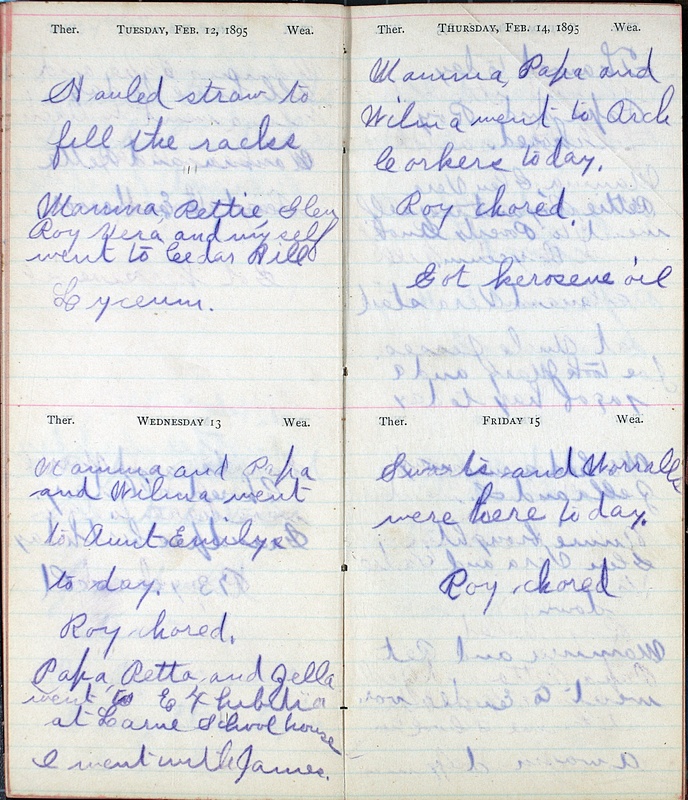 Ther. TUESDAY, FEB. 12, 1895 Wea.
Hauled straw to
fill the racks
Mamma, Rettie, Glen
Roy Vera and myself
went to Cedar Hill
Lyceum.
Ther. WEDNESDAY 13 Wea.
Mamma and Papa
and Wilma went
to Aunt Emilys
to day.
Roy chored.
Papa, Retta, and Zella
went to
at School house
I went with James.
Ther. THURSDAY, FEB. 14, 1895 Wea.
Mamma, Papa and
Wilma went to Arch
Corkers today.
Roy chored.
Got kerosene oil
Ther. FRIDAY 15 Wea.
and Worralls
were here to day.
Roy chored